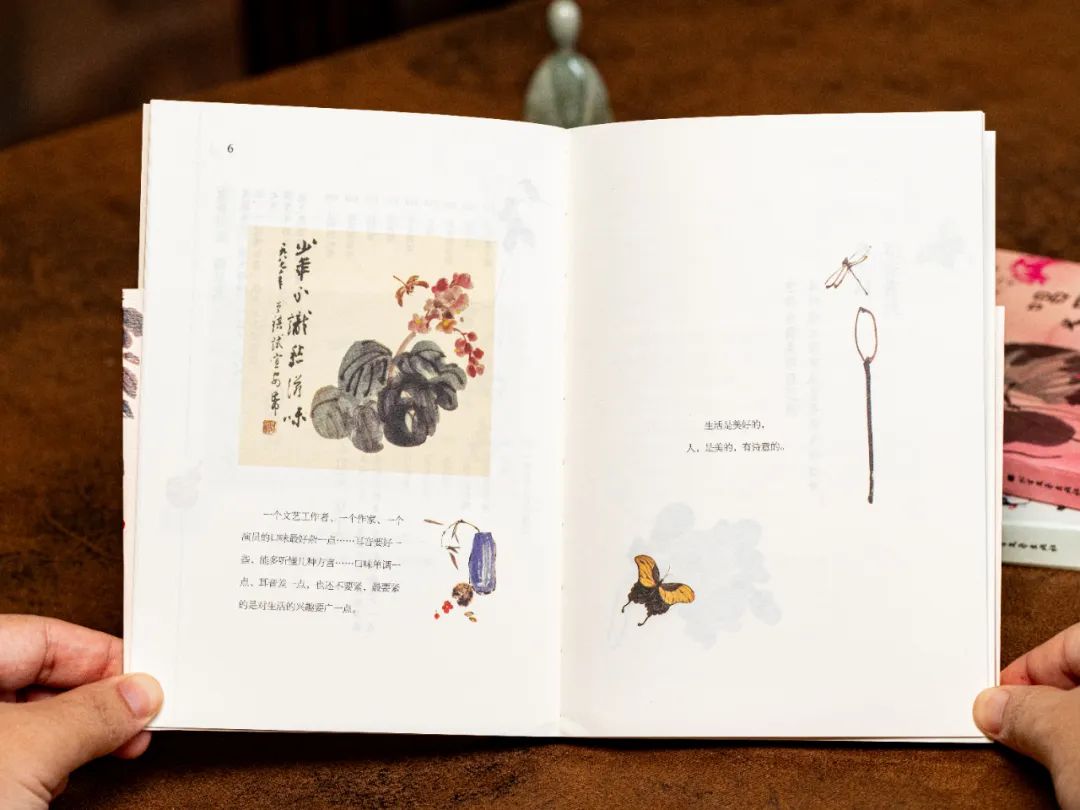 6
少年不識愁滋味
一个文艺工作者、一个作家、一个
演员的口味最好杂一点……耳音要好一
些，能多听懂几种方言……口味单调一
点、耳音差一点，也还不要紧，最要紧
的是对生活的兴趣要广一点。
生活是美好的，
人，是美的，有诗意的。